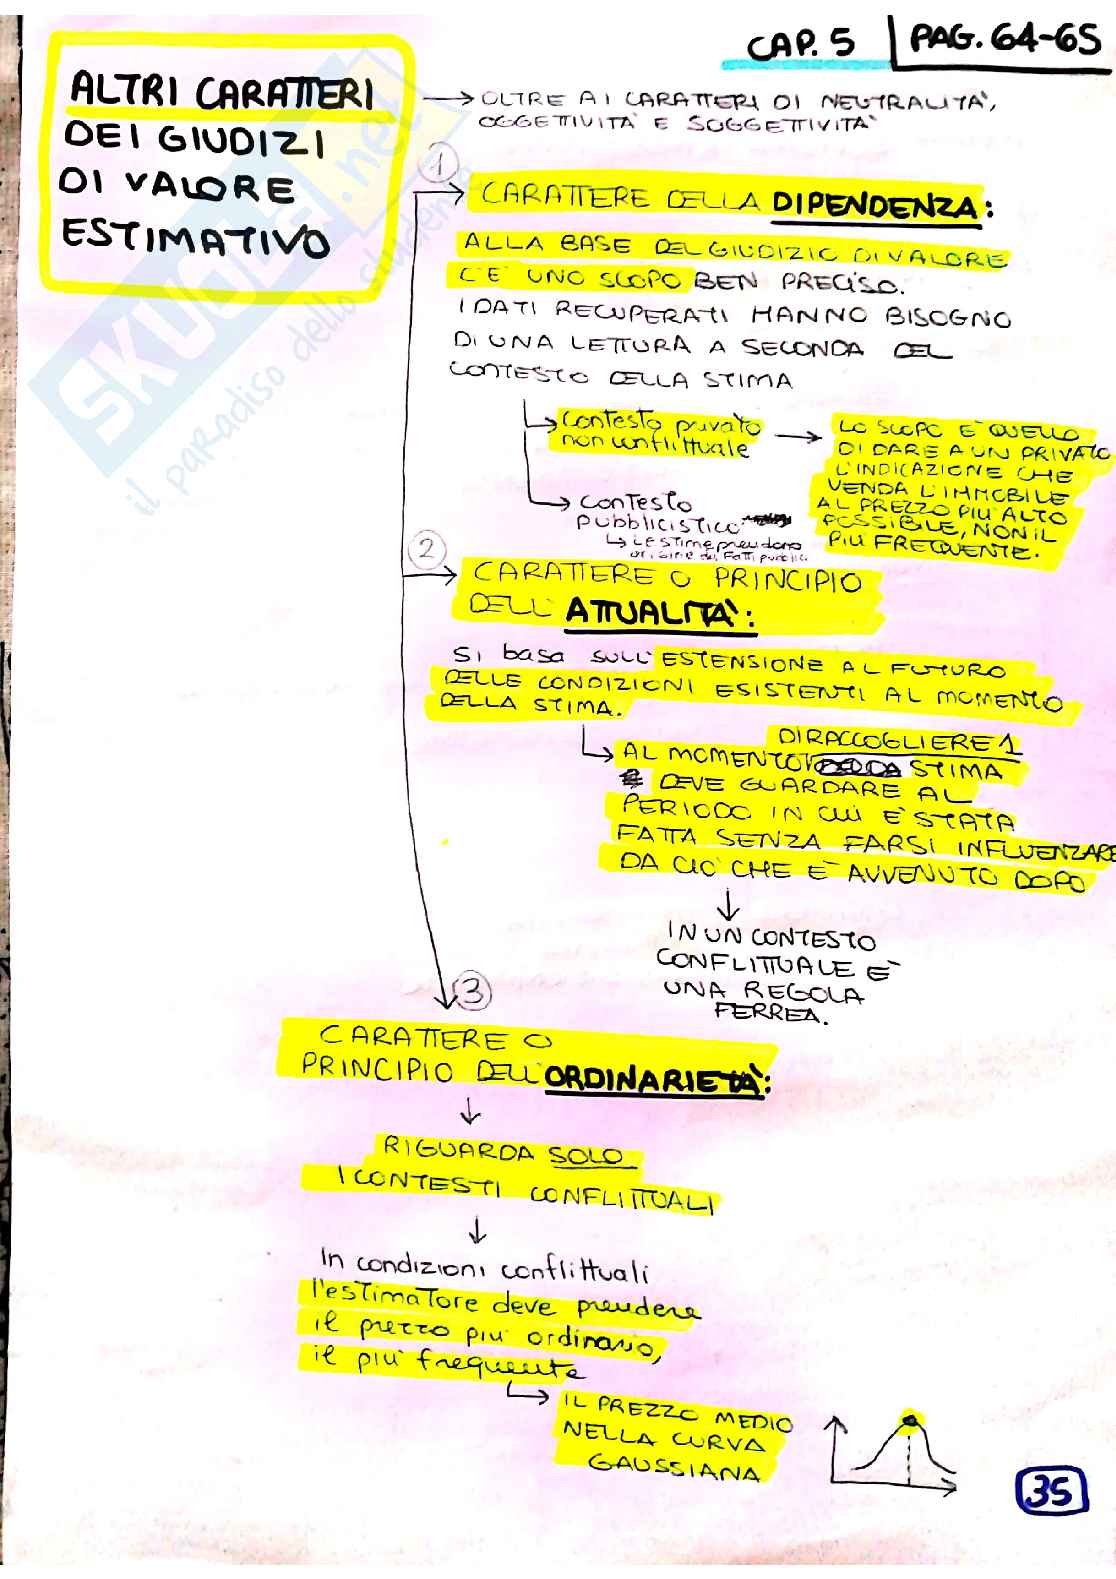 CAP. 5 | PAG. 64-65
ALTRI CARATTERI
DEI GIUDIZI
DI VALORE
ESTIMATIVO
→ OLTRE AI CARATTERI DI NEUTRALITÀ,
OGGETTIVITÀ E SOGGETTIVITÀ
1
CARATTERE DELLA DIPENDENZA:
ALLA BASE DEL GIUDIZIO DI VALORE
C'È UNO SCOPO BEN PRECISO.
I DATI RECUPERATI HANNO BISOGNO
DI UNA LETTURA A SECONDA DEL
CONTESTO DELLA STIMA
→ Contesto privato
non conflittuale
→ LO SCOPO È QUELLO
DI DARE A UN PRIVATO
L'INDICAZIONE CHE
VENDA L'IMMOBILE
AL PREZZO PIÙ ALTO
POSSIBILE, NON IL
PIÙ FREQUENTE.
→ CONTESTO
pubblicistico:
↳ Le stime prendono
origine da fatti pubblici
2
CARATTERE O PRINCIPIO
DELL'ATTUALITÀ:
SI basa SULL'ESTENSIONE AL FUTURO
DELLE CONDIZIONI ESISTENTI AL MOMENTO
DELLA STIMA.
DI RACCOGLIERE 1
→ AL MOMENTO STIMA
DEVE GUARDARE AL
PERIODO IN CUI È STATA
FATTA SENZA FARSI INFLUENZARE
DA CIÒ CHE È AVVENUTO DOPO
↓
IN UN CONTESTO
CONFLITTUALE È
UNA REGOLA
FERREA.
3
CARATTERE O
PRINCIPIO DELL'ORDINARIETÀ:
↓
RIGUARDA SOLO
I CONTESTI CONFLITTUALI
↓
In condizioni conflittuali
l'estimatore deve prendere
il prezzo più ordinario,
il più frequente
→ IL PREZZO MEDIO
NELLA CURVA
GAUSSIANA
35
SKUOLA.net
il paradiso dello studente